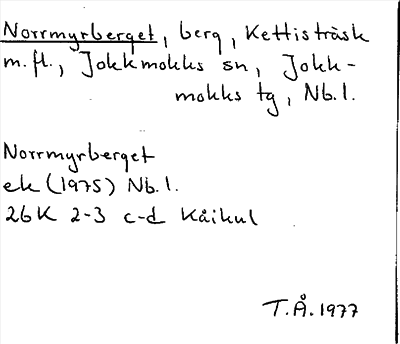 Norrmyrberget, berg, Kettisträsk
m.fl., Jokkmokks sn, Jokk-
mokks tg, Nb.l.
Norrmyrberget
ek (1975) Nb.l.
26K 2-3 c-d Kåikul
T.Å. 1977